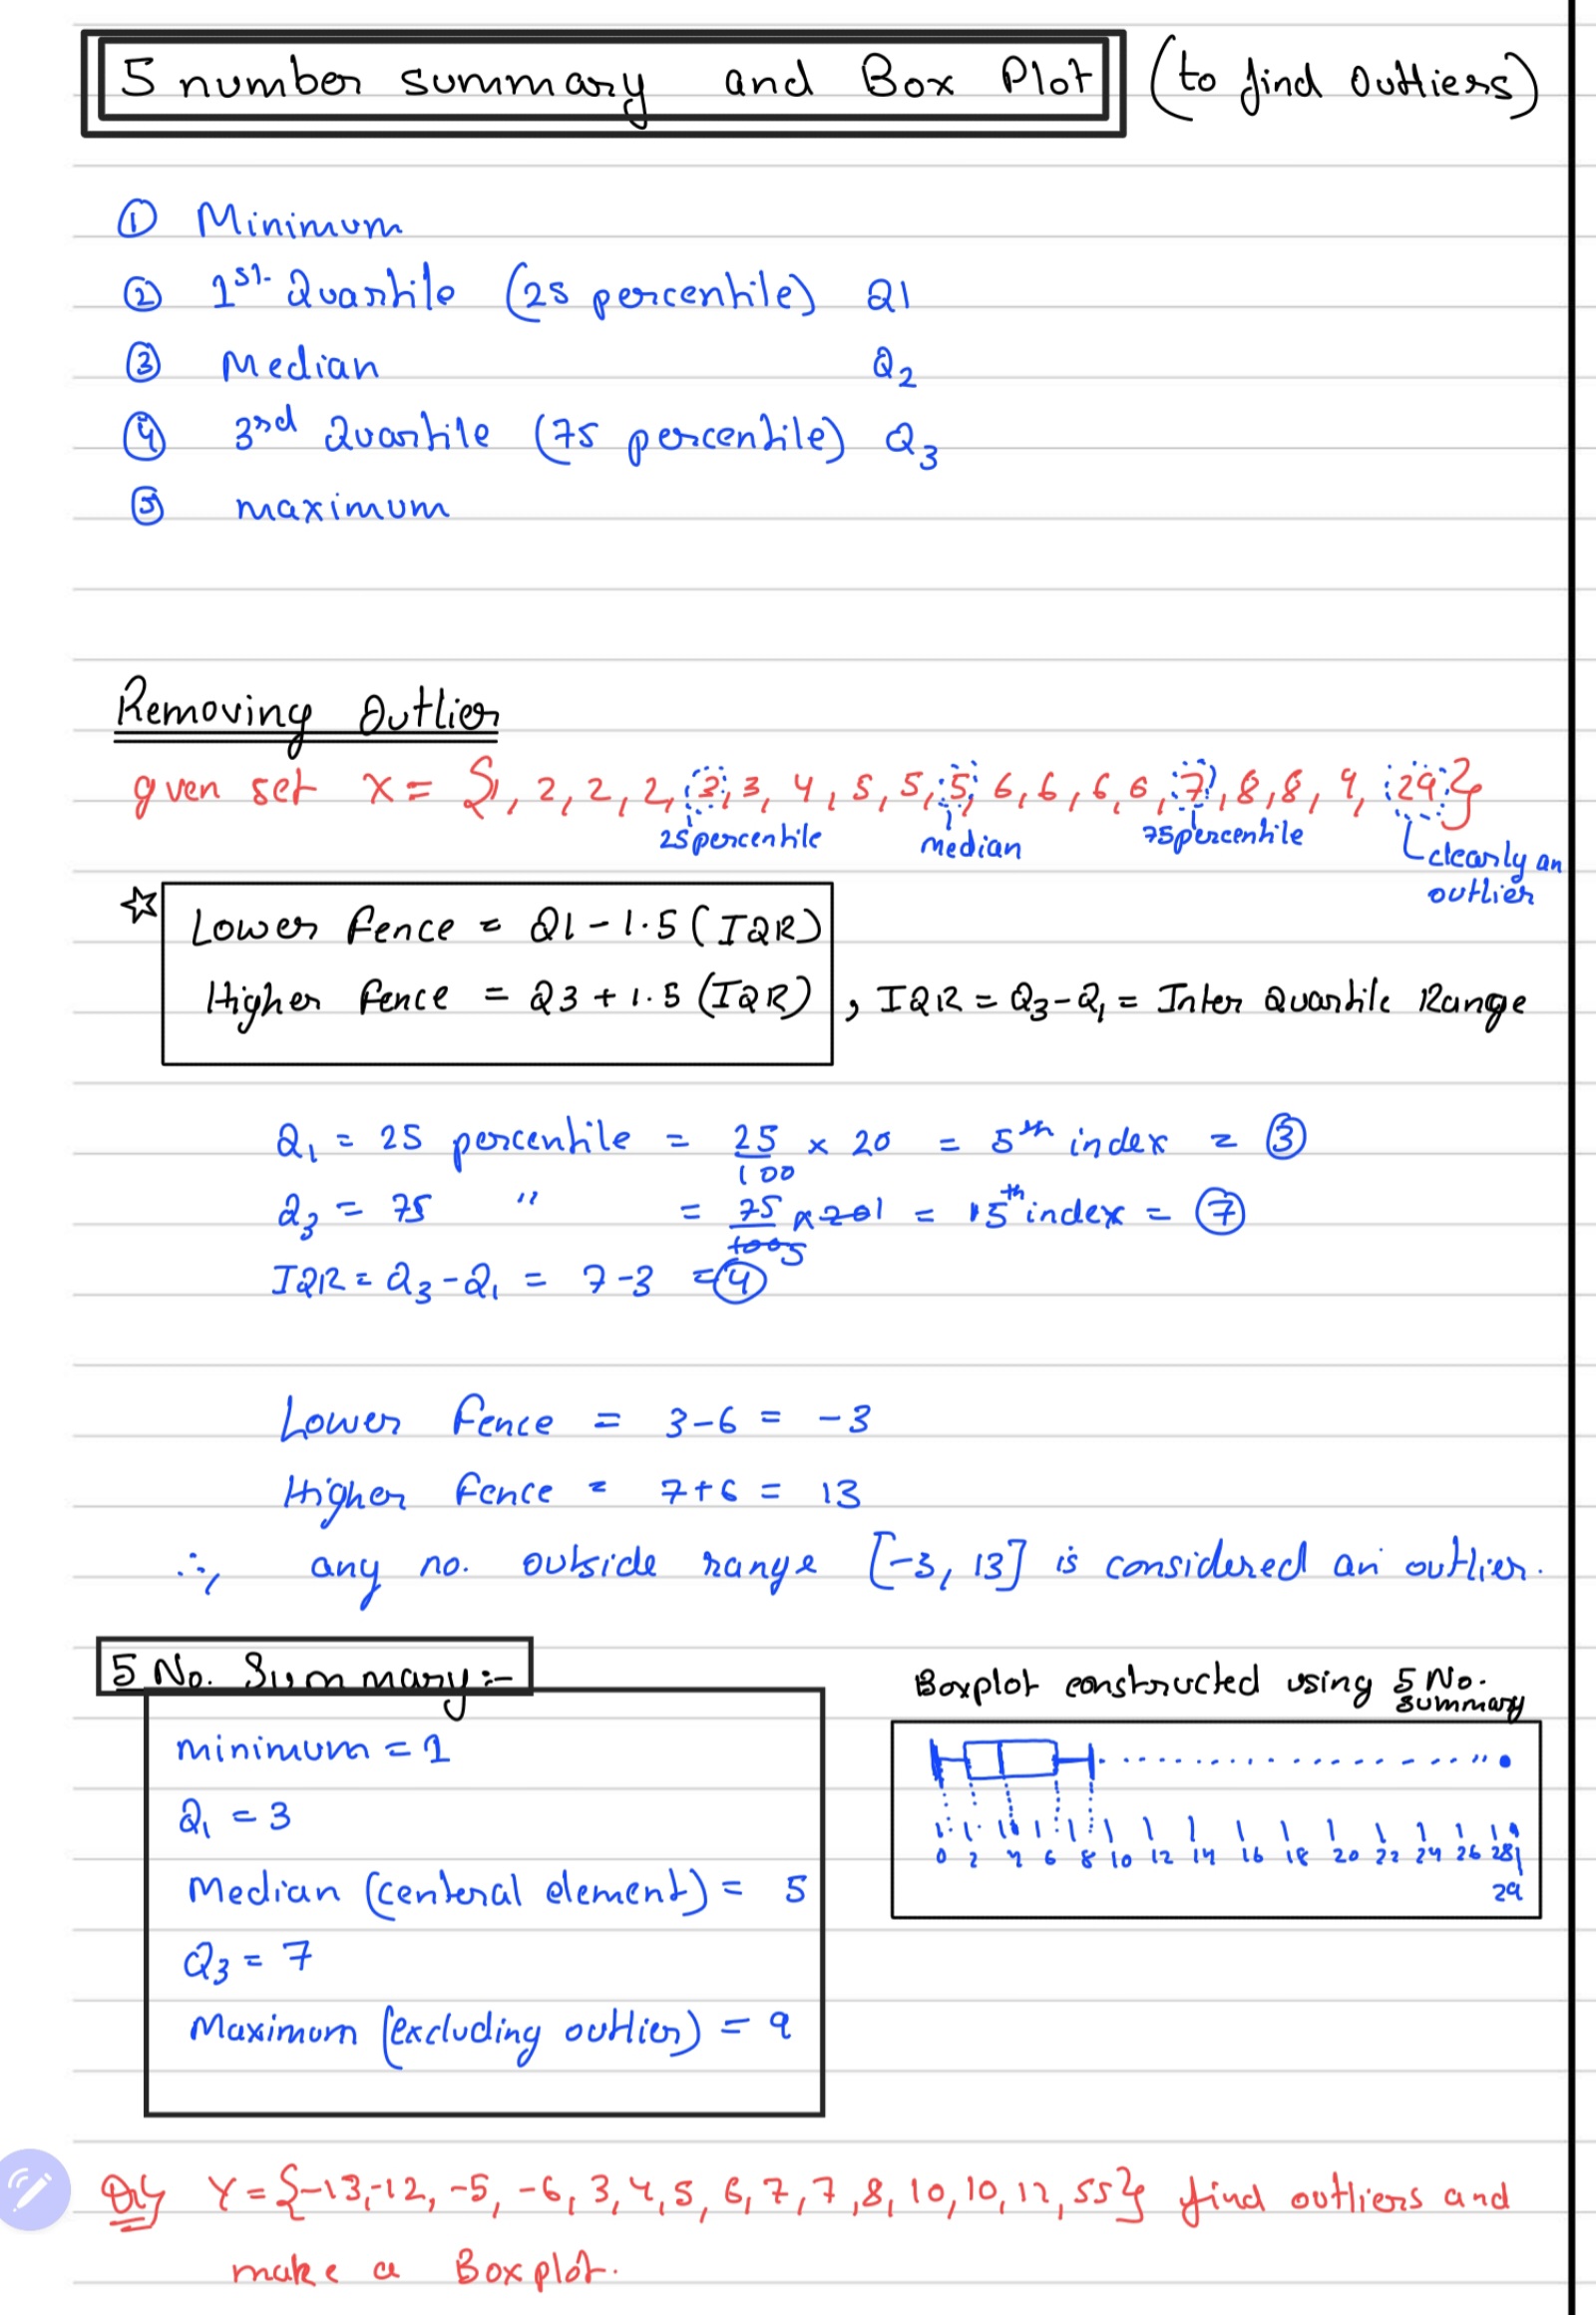 5 number summary and Box Plot (to find outliers)
① Minimum
② 1st Quartile (25 percentile) Q1
③ Median Q2
④ 3rd Quartile (75 percentile) Q3
⑤ maximum
Removing Outlier
given set x = {1, 2, 2, 2, 3, 3, 4, 5, 5, 5, 6, 6, 6, 6, 7, 8, 8, 9, 29}
25 percentile median 75 percentile clearly an
outlier
☆ Lower fence = Q1 - 1.5 (IQR)
Higher fence = Q3 + 1.5 (IQR) , IQR = Q3 - Q1 = Inter Quartile Range
Q1 = 25 percentile = 25/100 x 20 = 5th index = 3
Q3 = 75 " = 75/100 5 x 20 1 = 15th index = 7
IQR = Q3 - Q1 = 7 - 3 = 4
Lower fence = 3 - 6 = -3
Higher fence = 7 + 6 = 13
∴, any no. outside range [-3, 13] is considered an outlier.
5 No. Summary :-
minimum = 1
Q1 = 3
Median (centeral element) = 5
Q3 = 7
Maximum (excluding outlier) = 9
Boxplot constructed using 5 No.
summary
0 2 4 6 8 10 12 14 16 18 20 22 24 26 28
29
Y = {-13, -12, -5, -6, 3, 4, 5, 6, 7, 7, 8, 10, 10, 12, 55} find outliers and
make a Boxplot.